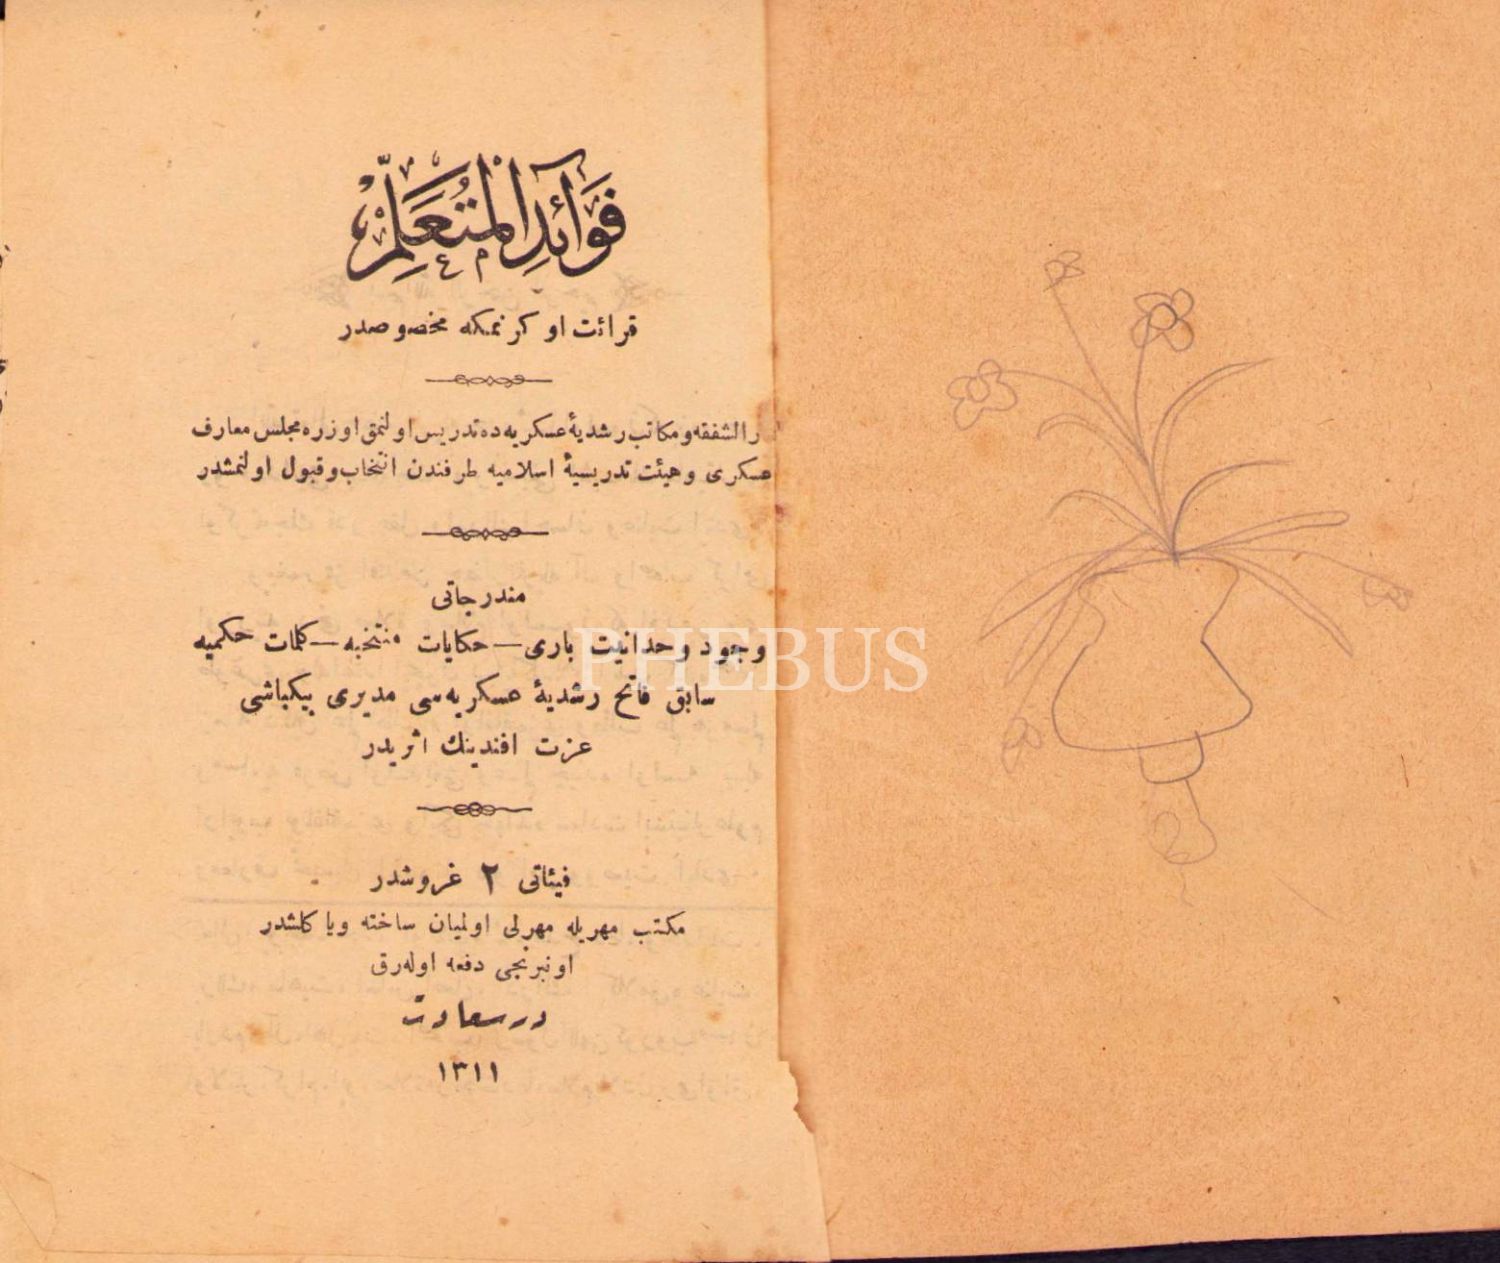 فَوَآئِدِ الْمُتَعَلِّمْ
قرائت اوكرنمكه مخصوصدر
رالشفقه و مكاتب رشدیهٔ عسكریه‌ده تدریس اولنمق اوزره مجلس معارف
عسكری و هیئت تدریسیهٔ اسلامیه طرفندن انتخاب و قبول اولنمشدر
مندرجاتی
وجود وحدانیت باری — حكایات منتخبه — كلمات حكمیه
سابق فاتح رشدیهٔ عسكریه‌سی مدیری بیكباشی
عزت افندینك اثریدر
فیئاتی ٢ غروشدر
مكتب مهریله مهرلی اولمیان ساخته ویا كلشدر
اونبرنجی دفعه اوله‌رق
درسعادت
١٣١١
PHEBUS